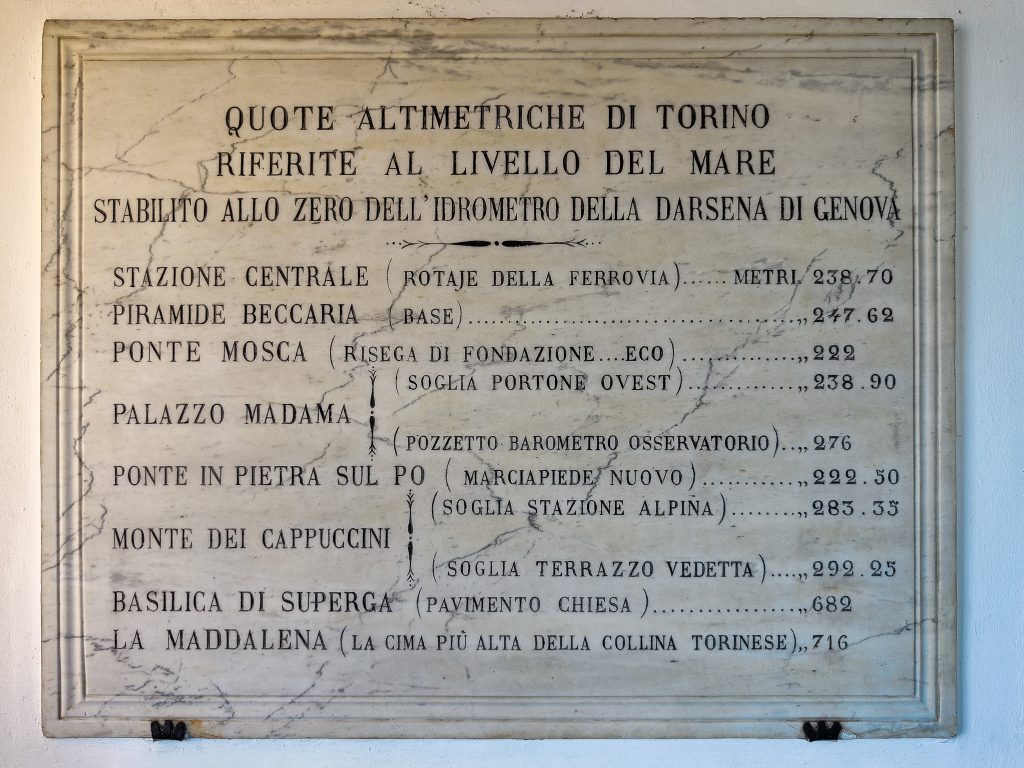 QUOTE ALTIMETRICHE DI TORINO
RIFERITE AL LIVELLO DEL MARE
STABILITO ALLO ZERO DELL'IDROMETRO DELLA DARSENA DI GENOVA
STAZIONE CENTRALE (ROTAJE DELLA FERROVIA)...... METRI. 238.70
PIRAMIDE BECCARIA (BASE)........................................„247.62
PONTE MOSCA (RISEGA DI FONDAZIONE....ECO)..............„222
(SOGLIA PORTONE OVEST).............„238.90
PALAZZO MADAMA
(POZZETTO BAROMETRO OSSERVATORIO)..„276
PONTE IN PIETRA SUL PO (MARCIAPIEDE NUOVO)............„222.50
(SOGLIA STAZIONE ALPINA)........„283.35
MONTE DEI CAPPUCCINI
(SOGLIA TERRAZZO VEDETTA)....„292.25
BASILICA DI SUPERGA (PAVIMENTO CHIESA)..................„682
LA MADDALENA (LA CIMA PIÙ ALTA DELLA COLLINA TORINESE)„716